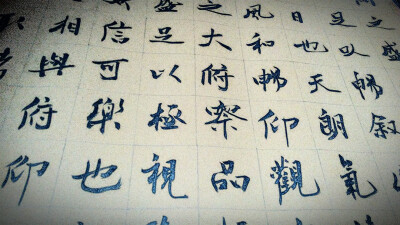 之盛
足以暢叙
日也天朗氣
風和暢仰觀
之大俯察品
盛足以極視
信可樂也
相與俯仰